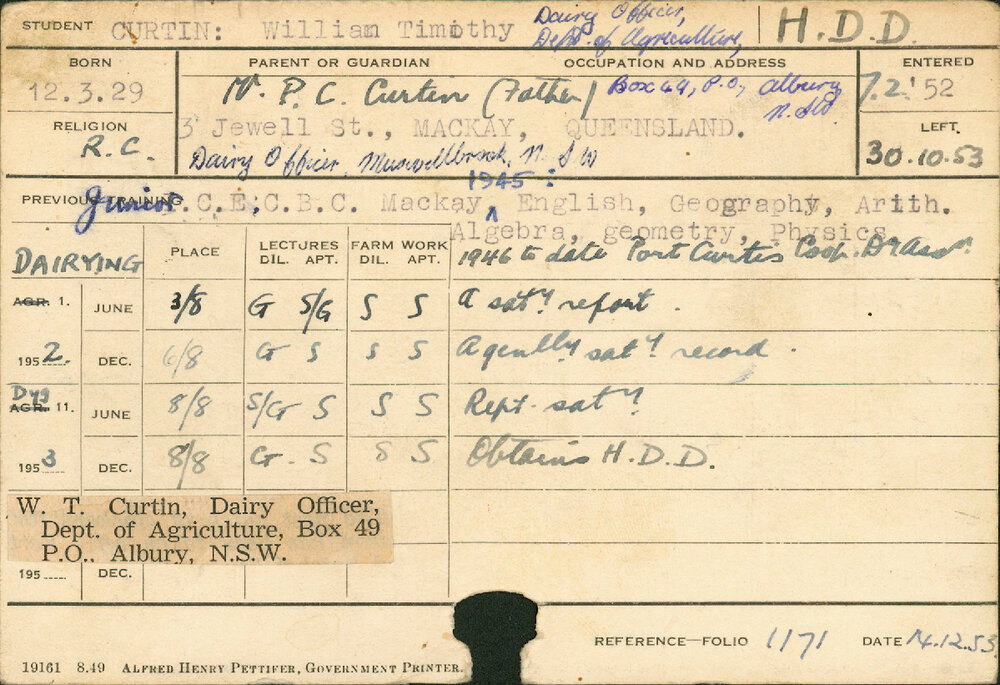 STUDENT CURTIN: William Timothy Dairy Officer, Dept. of Agriculture, H.D.D.
BORN PARENT OR GUARDIAN OCCUPATION AND ADDRESS ENTERED
12.3.29 Mr. P. C. Curtin (Father) Box 49, P.O, Albury N.SW. 7.2.'52
RELIGION 3 Jewell St., MACKAY, QUEENSLAND. LEFT.
R.C. Dairy Officer, Muswellbrook, N.SW 30.10.53
1945:
PREVIOUS TRAINING Junior P.C.E,C.B.C. Mackay, English, Geography, Arith.
Algebra, geometry, Physics
DAIRYING PLACE LECTURES FARM WORK 1946 to date Port Curtis Coop. D. Assn.
DIL. APT. DIL. APT.
AGR. 1. JUNE 3/8 G S/G S S A saty report.
1952. DEC. 6/8 G S S S A genlly saty record.
Dyg
AGR. 11. JUNE 8/8 S/G S S S Rept. saty
1953 DEC. 8/8 G. S S S Obtains H.D.D.
W. T. Curtin, Dairy Officer,
Dept. of Agriculture, Box 49
P.O., Albury, N.S.W.
195 DEC.
REFERENCE—FOLIO 1171 DATE 14.12.53
19161 8.49 ALFRED HENRY PETTIFER, GOVERNMENT PRINTER.